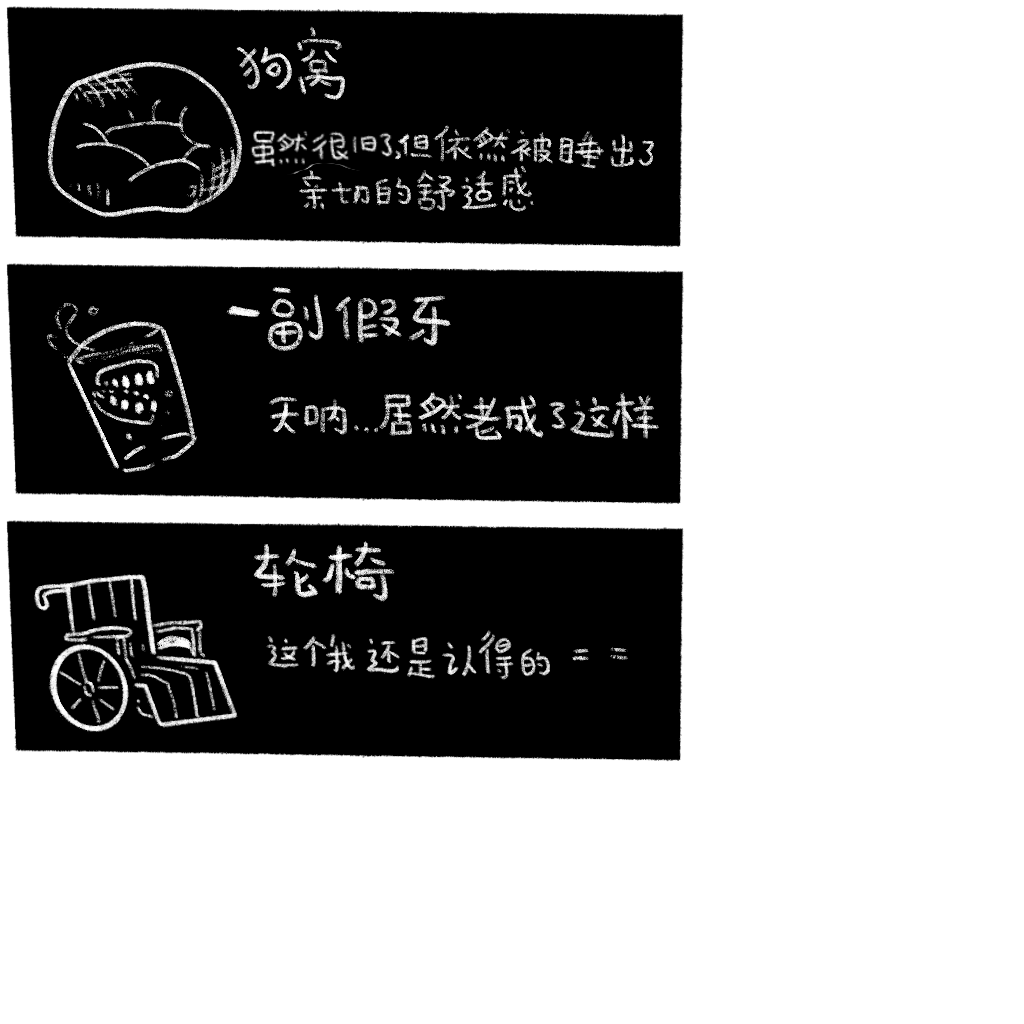 狗窝
虽然很旧了,但依然被睡出了
亲切的舒适感
一副假牙
天呐...居然老成了这样
轮椅
这个我还是认得的 = =